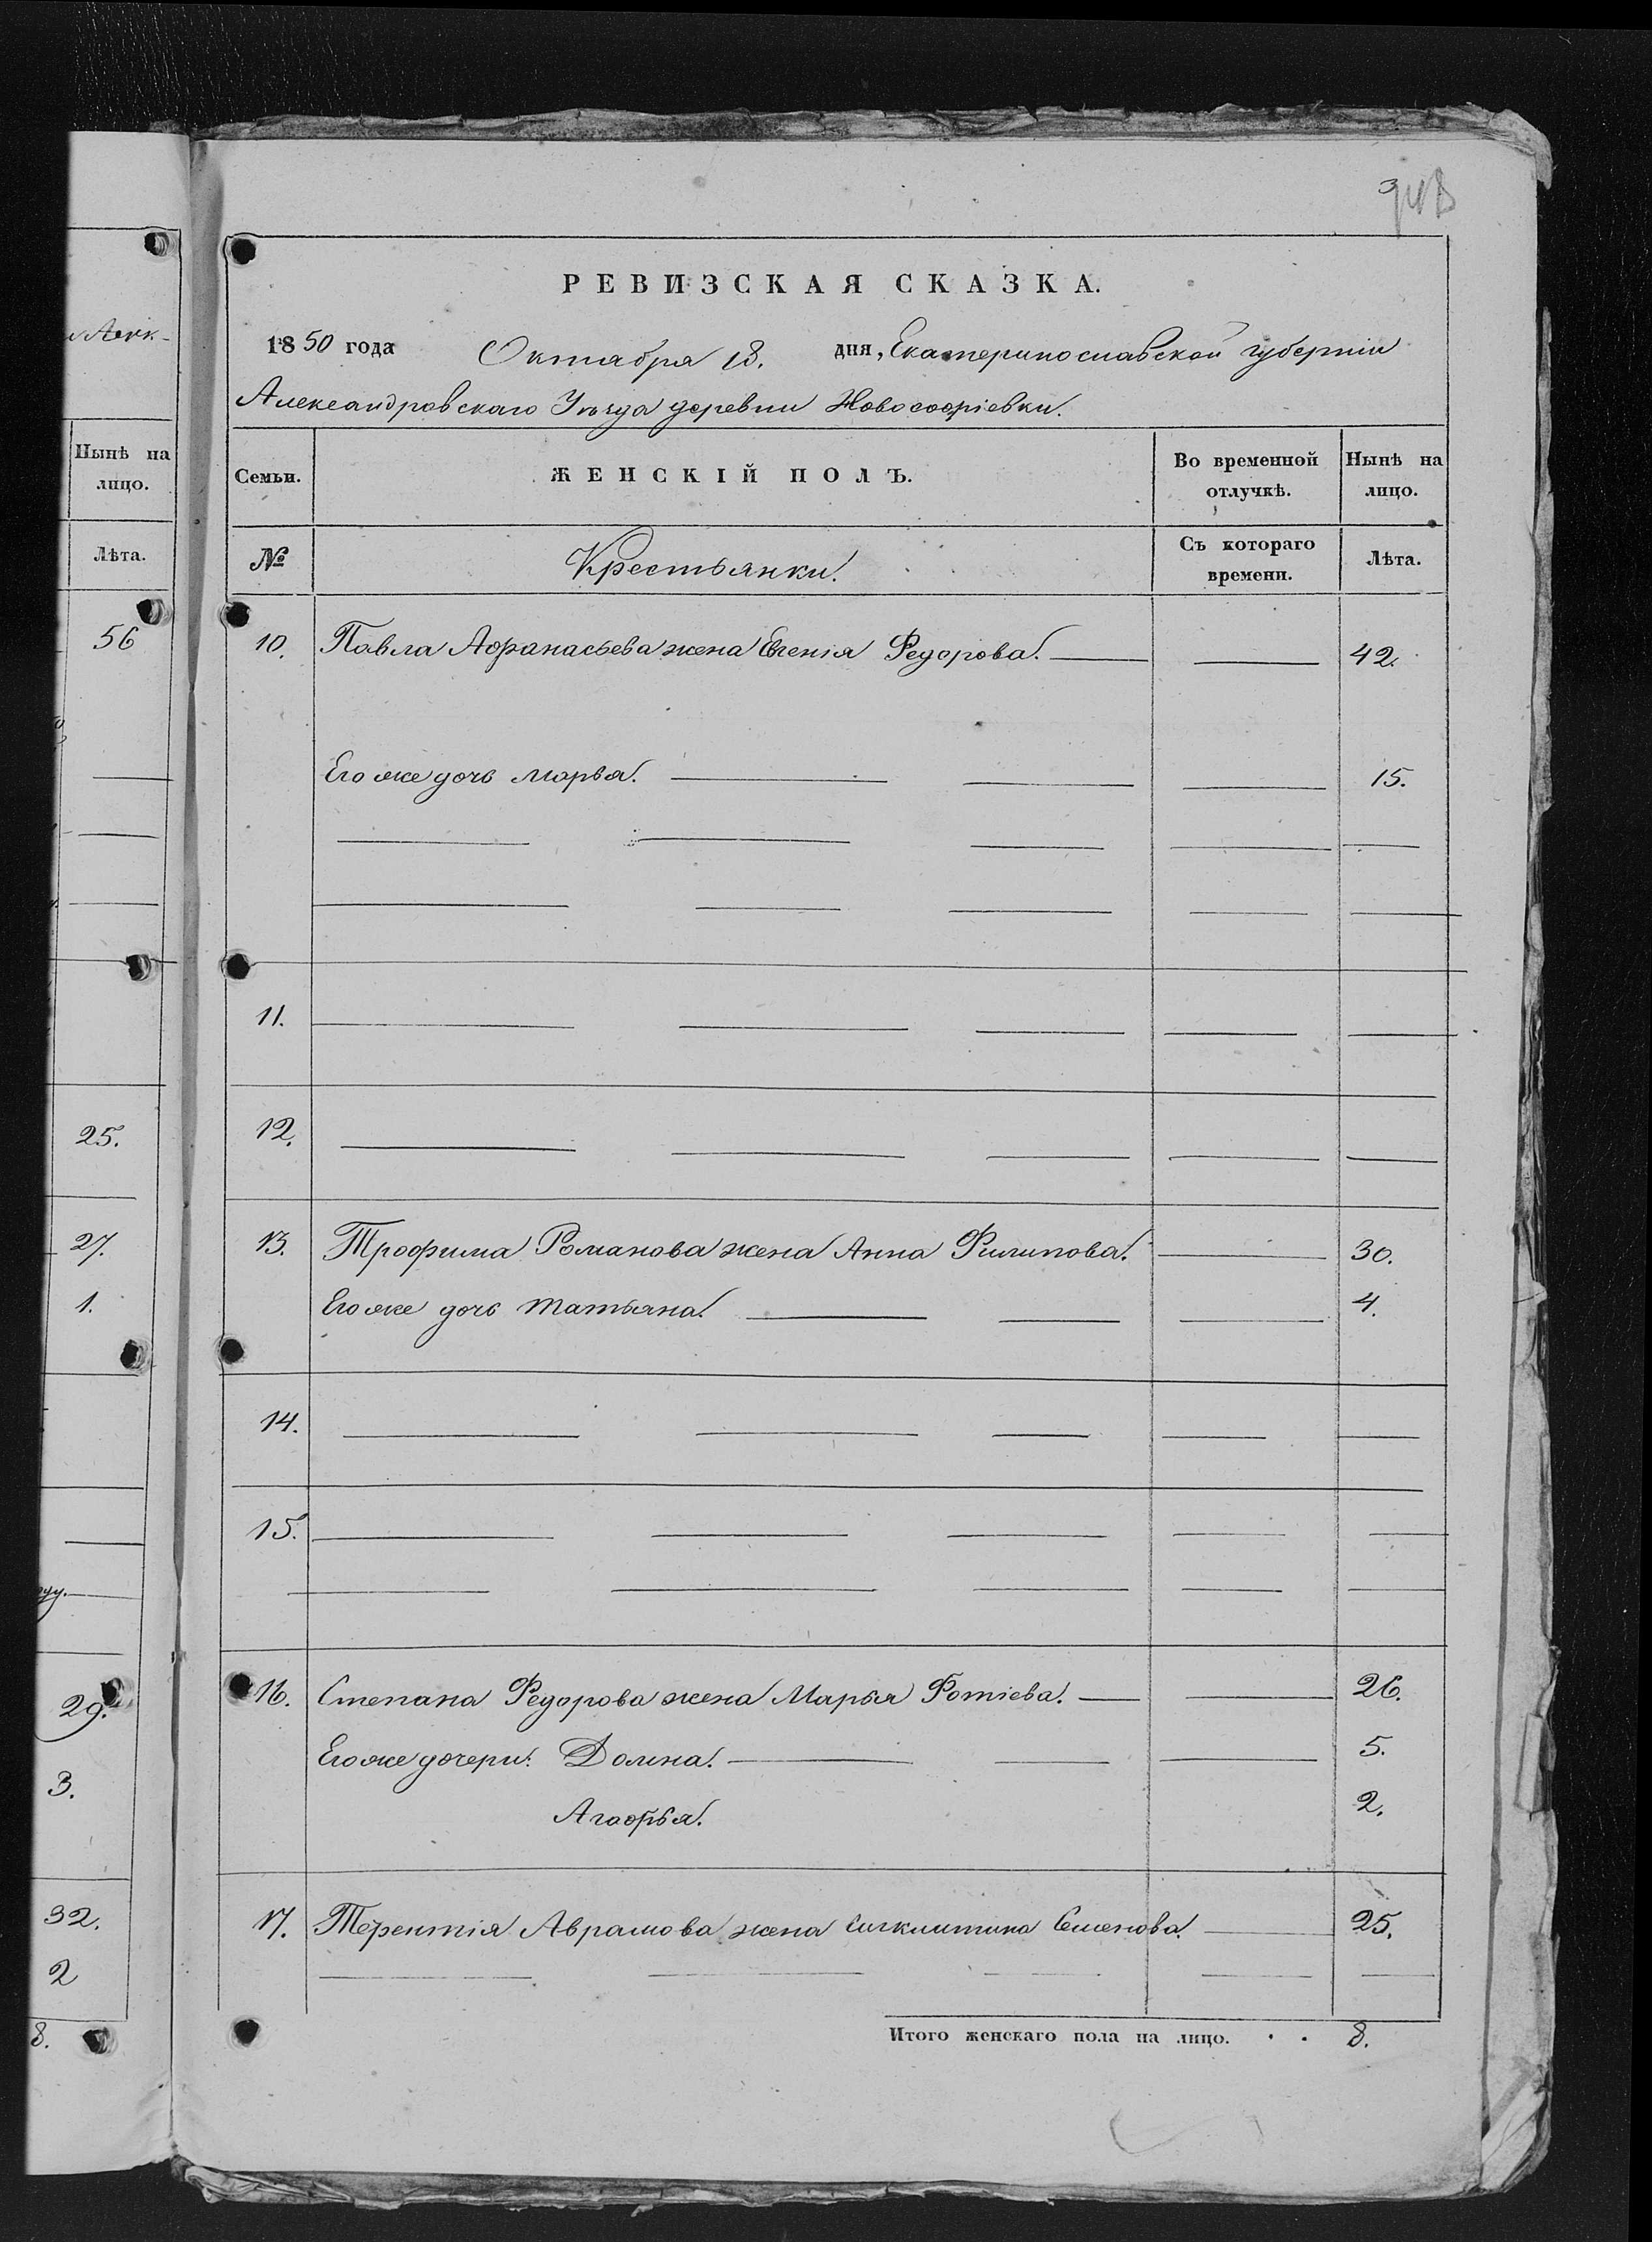 Аѳик-
Нынѣ на
лицо.
Лѣта.
56
25.
27.
1.
29.
3.
32.
2
8.
РЕВИЗСКАЯ СКАЗКА.
1850 года Октабря 18. дня, Екатеринославской губерніи
Александровскаго Уѣзда деревни Новософіевки.
Семьи. ЖЕНСКІЙ ПОЛЪ. Во временной отлучкѣ. Нынѣ на лицо.
№ Крестьянки. Съ котораго времени. Лѣта.
10. Павла Афанасьева жена Евгенія Федорова. 42.
Его же дочь Марья. 15.
11.
12.
13. Трофима Романова жена Анна Филипова. 30.
Его же дочь Татьяна. 4.
14.
15.
16. Степана Федорова жена Марья Фотіева. 26.
Его же дочери: Домна. 5.
Агафья. 2.
17. Терентія Аврамова жена Сигклитина Семенова. 25.
Итого женскаго пола на лицо. . . 8.